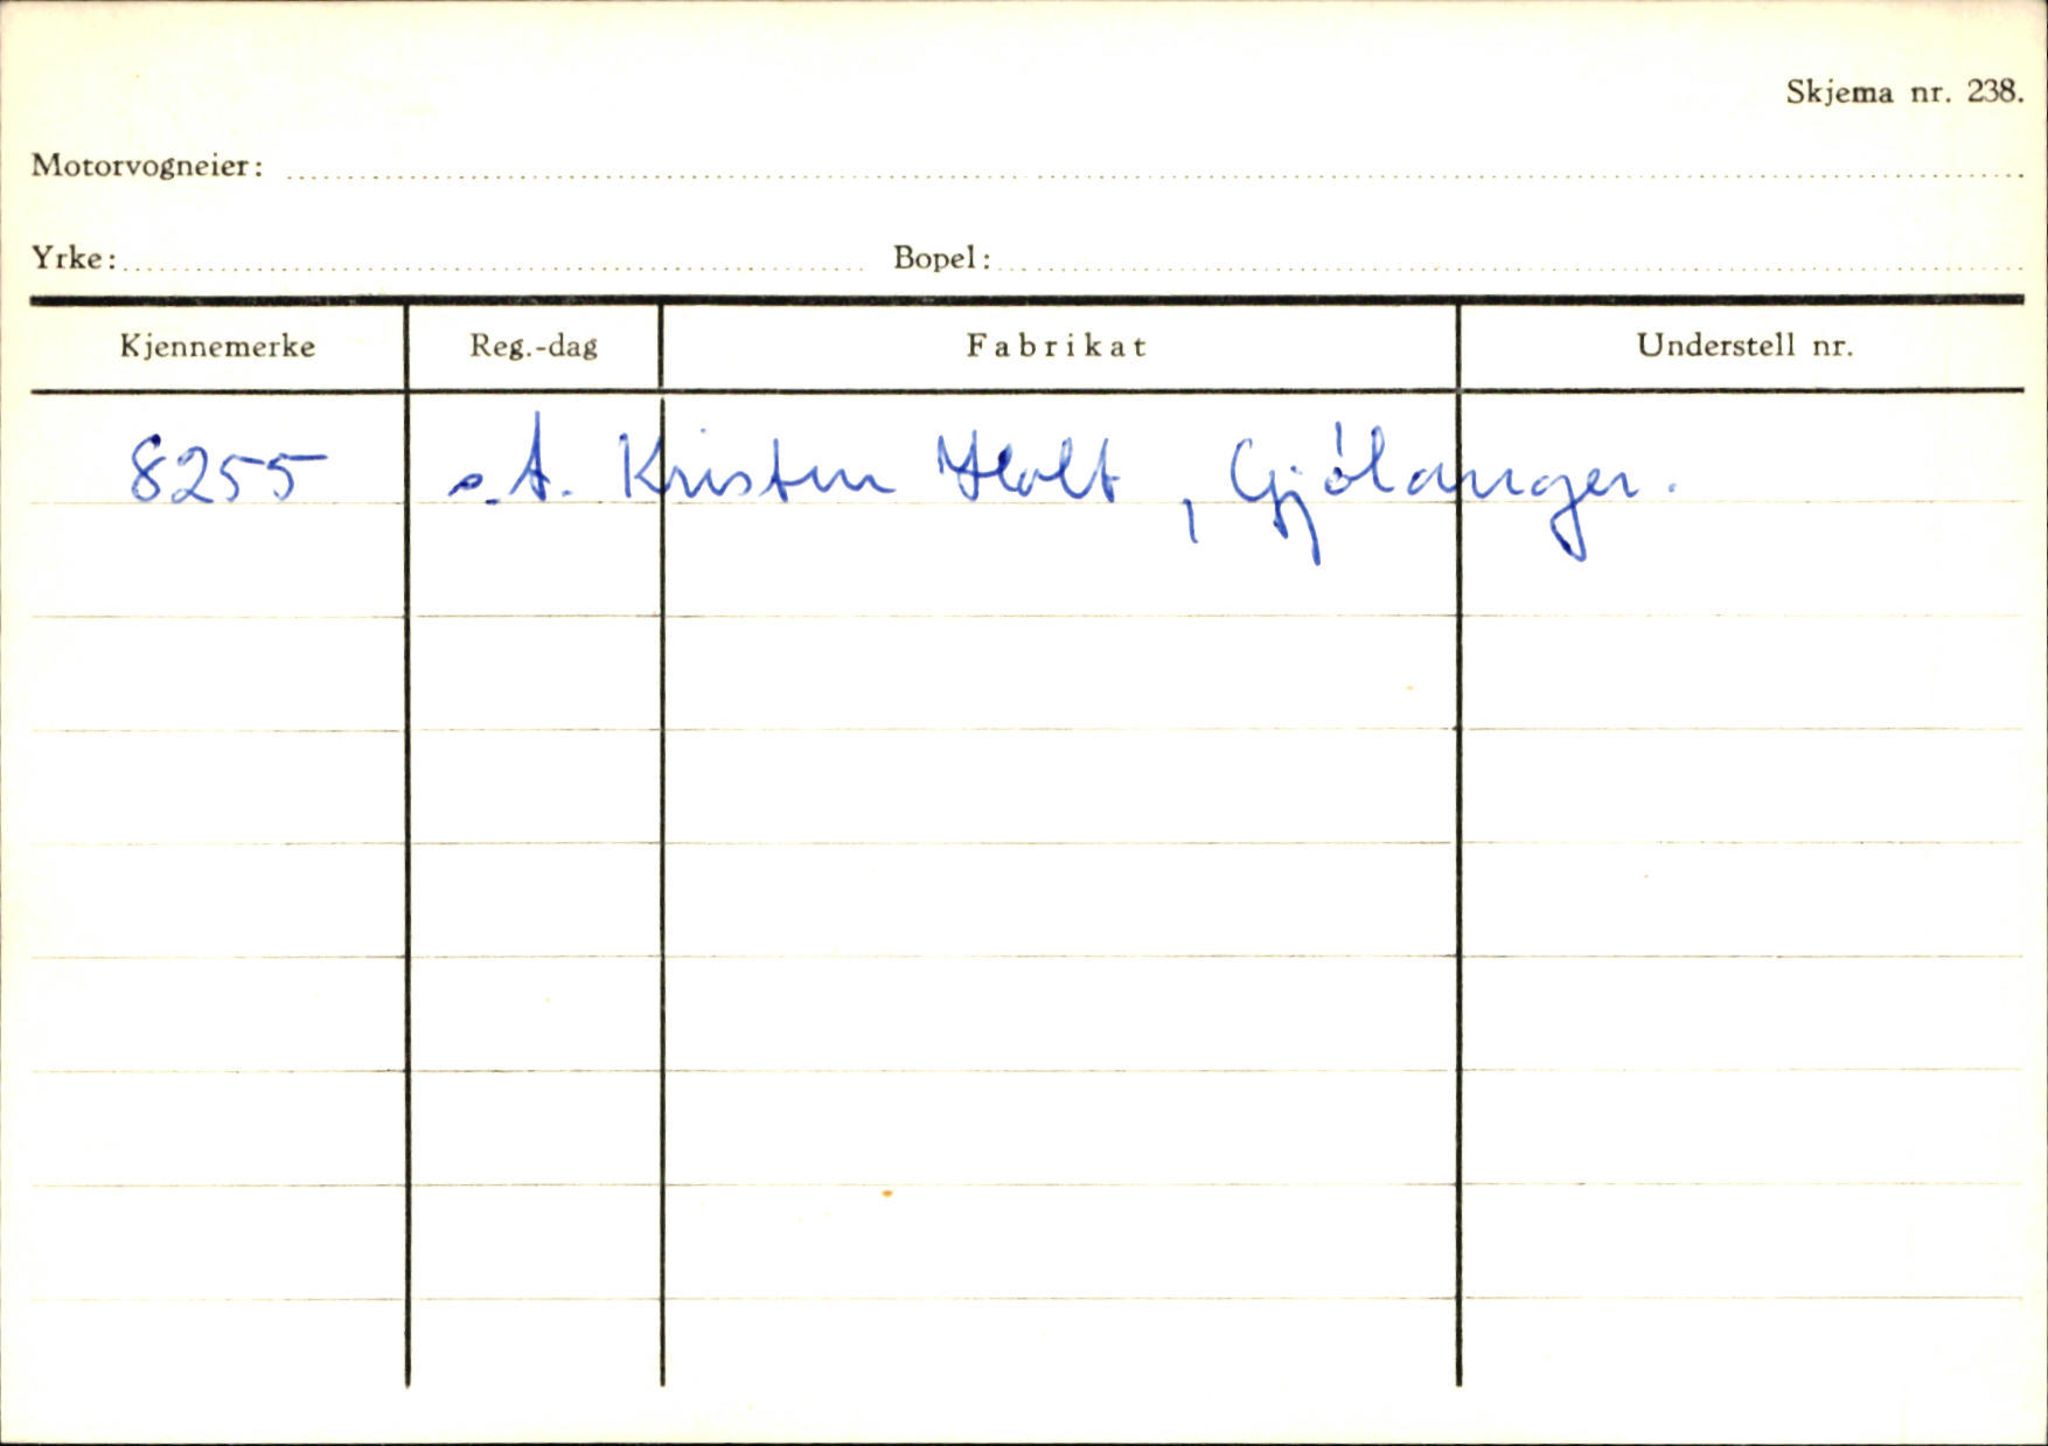 Skjema nr. 238.
Motorvogneier:
Yrke: Bopel:
Kjennemerke Reg.-dag Fabrikat Understell nr.
8255 s.d. Kristen Holt, Gjölanger.